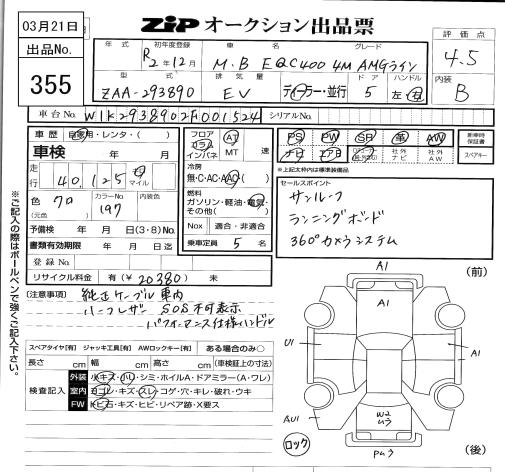 03月21日
ZiP オークション出品票
出品No.
355
年式 初年度登録 車名 グレード
R2年12月 M・B EQC400 4M AMGライン
型式 排気量 ドア ハンドル
ZAA-293890 EV ディーラー・並行 5 左 右
評価点
4.5
内装
B
車台No. W1K2938902F001524 シリアルNo.
車歴 自家用・レンタ・( )
車検 年 月
走行 40,125 キロ マイル
色 クロ カラーNo. 197 内装色
(元色)
予備検 年 月 日(3・8)No.
書類有効期限 年 月 日迄
登録No.
リサイクル料金 有(¥20380) 未
フロア フラット インパネ AT MT 速
冷房
無・C・AC・AAC
燃料
ガソリン・軽油・電気・その他( )
Nox 適合・非適合
乗車定員 5 名
PS PW SR 革 AW
ナビ エアB 社外ナビ 社外AW
新車時保証書
スペアキー
※上記太枠内は標準装備品
セールスポイント
サンルーフ
ランニングボード
360°カメラシステム
(注意事項) 純正ケーブル車内
ハーフレザー SOS不可表示
パフォーマンス仕様ハンドル
スペアタイヤ[有] ジャッキ工具[有] AWロックキー[有] ある場合のみ○
長さ cm 幅 cm 高さ cm (車検証上の寸法)
検査記入
外装 小キズ・小凹・シミ・ホイルA・ドアミラー(A・ワレ)
室内 ヨゴレ・キズ・スレ・コゲ・穴・キレ・破れ・ウキ
FW トビ石・キズ・ヒビ・リペア跡・X要ス
※ご記入の際はボールペンで強くご記入下さい。
A1
(前)
A1
U1
A1
AU1
W2
U3
ロック
PU3
(後)